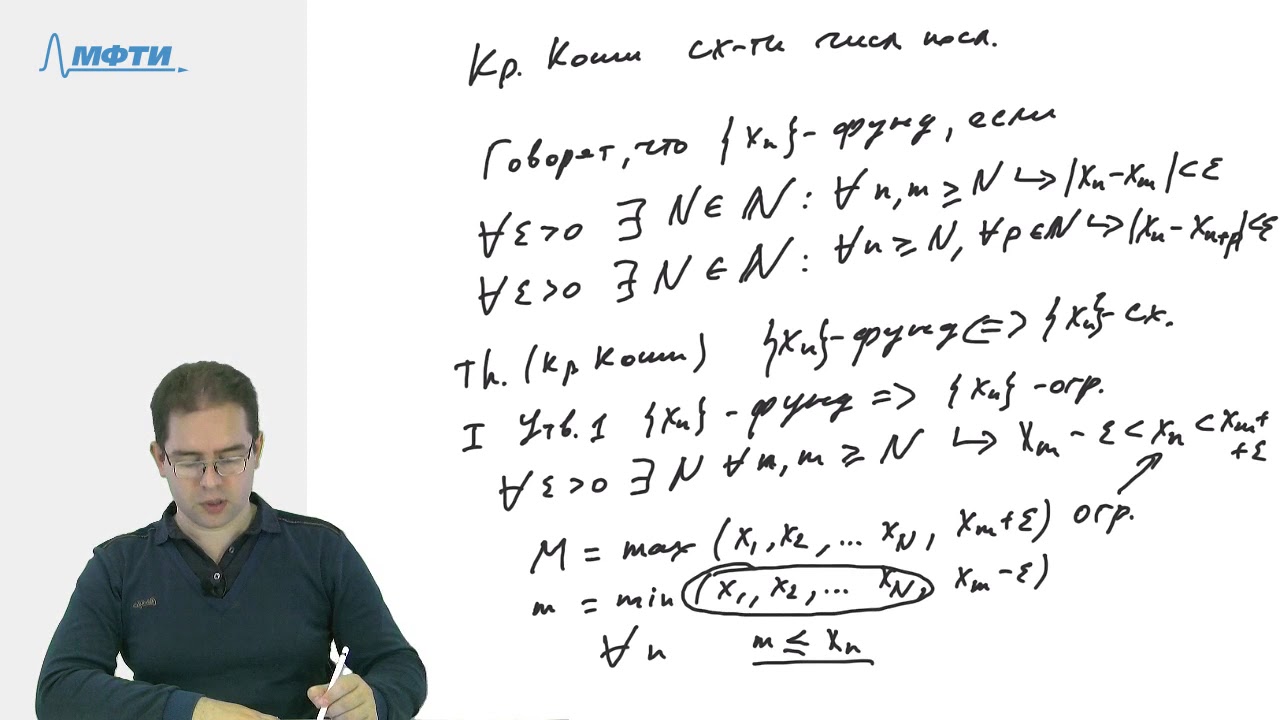 МФТИ
Кр. Коши сх-ти числ посл.
Говорят, что {xₙ}-фунд, если
∀ε>0 ∃ N∈ℕ: ∀ n,m ≥ N ↪ |xₙ-xₘ|<ε
∀ε>0 ∃ N∈ℕ: ∀n≥N, ∀p∈ℕ ↪ |xₙ-xₙ₊ₚ|<ε
Th. (кр Коши) {xₙ}-фунд <=> {xₙ}-сх.
I Утв. 1 {xₙ}-фунд => {xₙ}-огр.
∀ε>0 ∃ N ∀ n,m ≥ N ↪ xₘ-ε<xₙ<xₘ+
+ε
M = max (x₁,x₂,... x_N, xₘ+ε) огр.
m = min (x₁,x₂,... x_N, xₘ-ε)
∀ n m ≤ xₙ